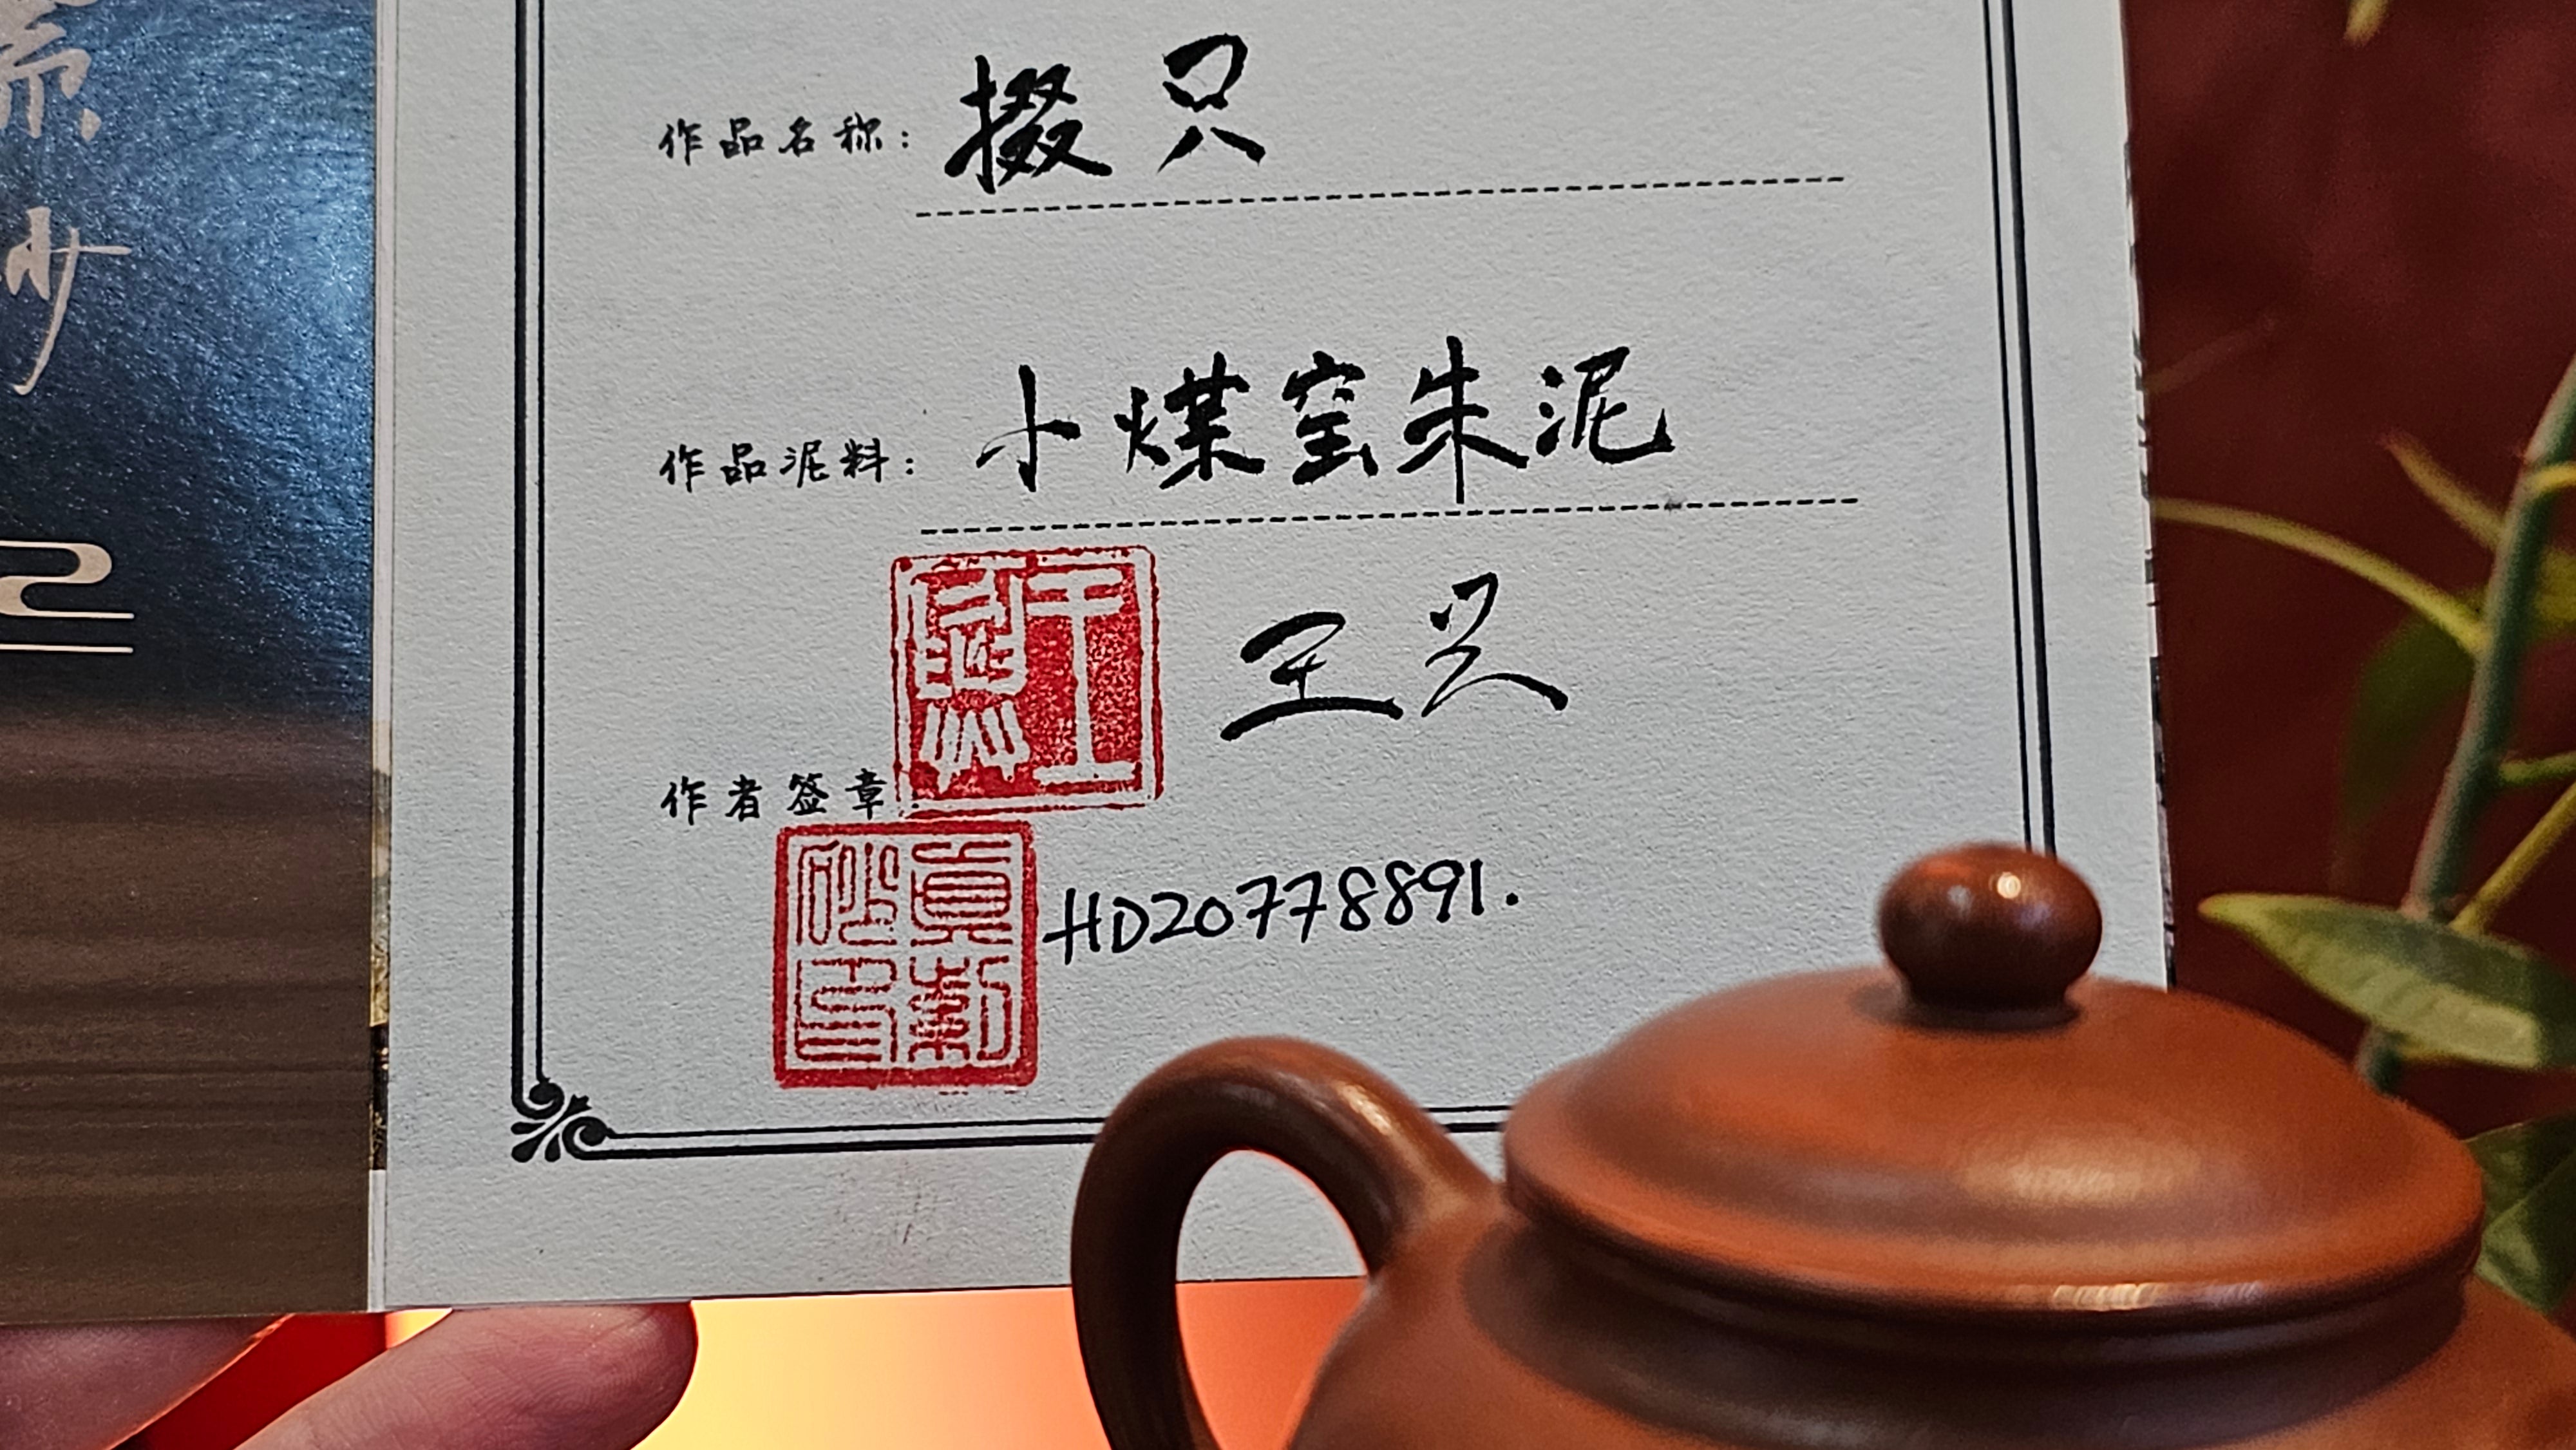 作品名称：掇只
作品泥料：小煤窑朱泥
王兴
作者签章：
HD20778891.